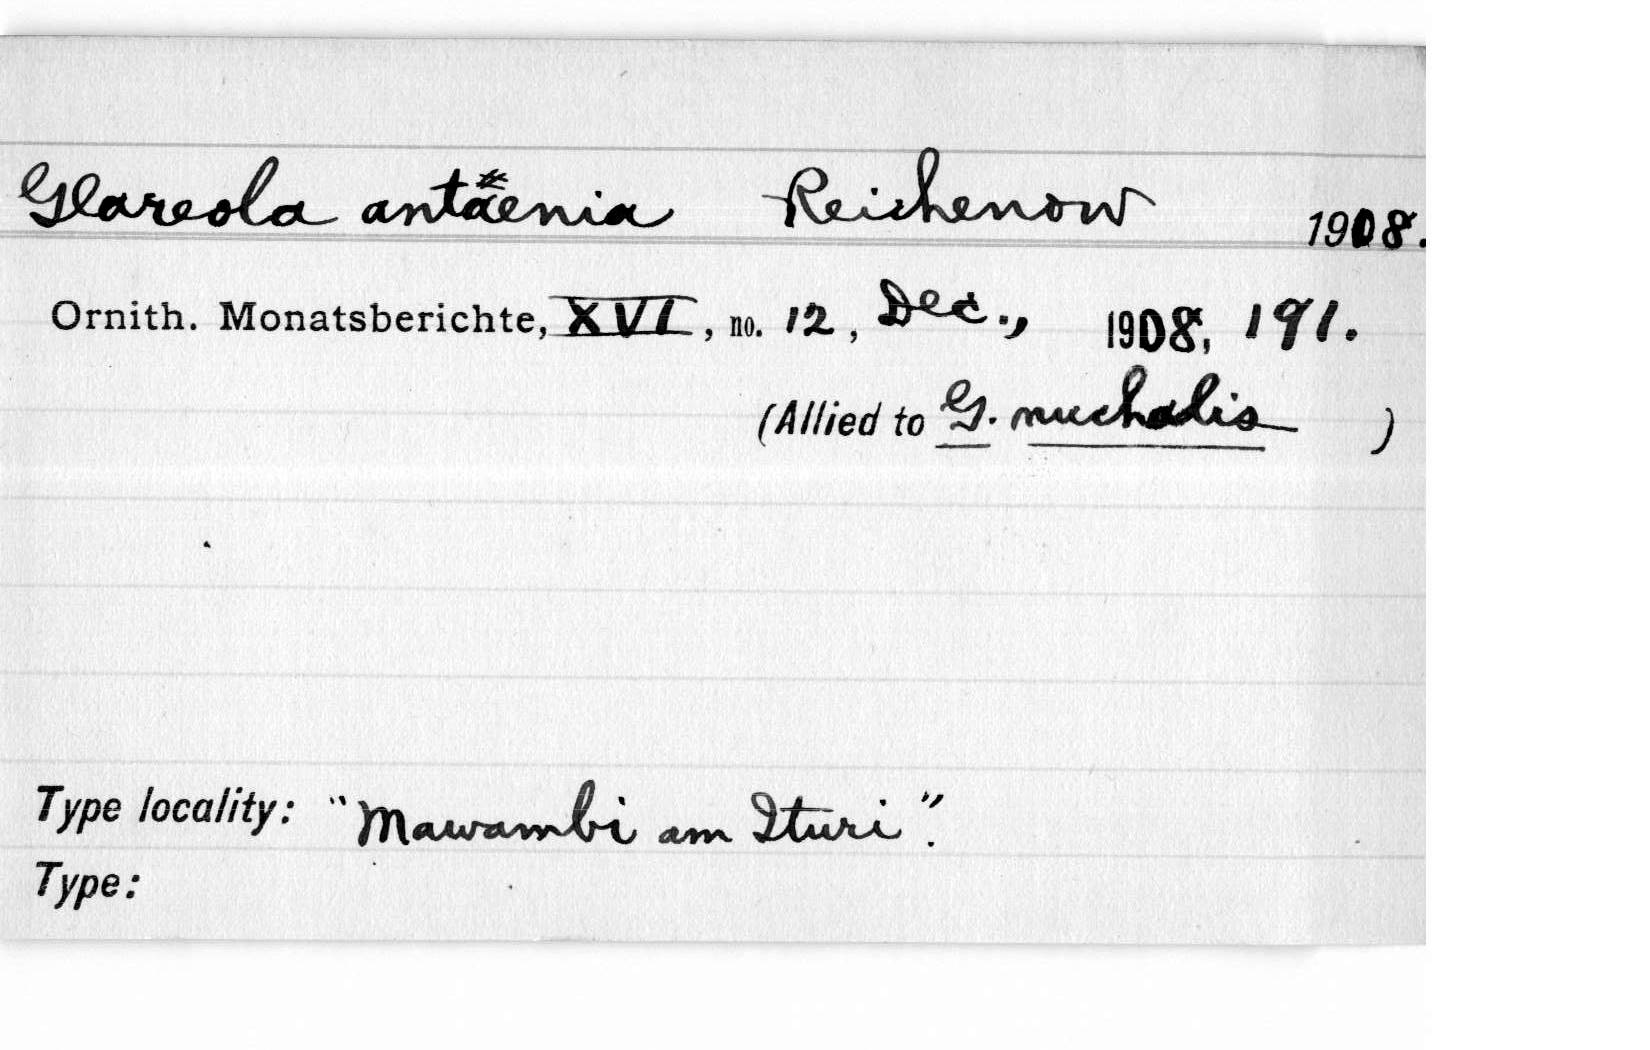 Glareola antaenia Reichenow 1908.
Ornith. Monatsberichte, XVI, no. 12, Dec., 1908, 191.
(Allied to G. nuchalis )
Type locality: "Mawambi am Ituri".
Type: